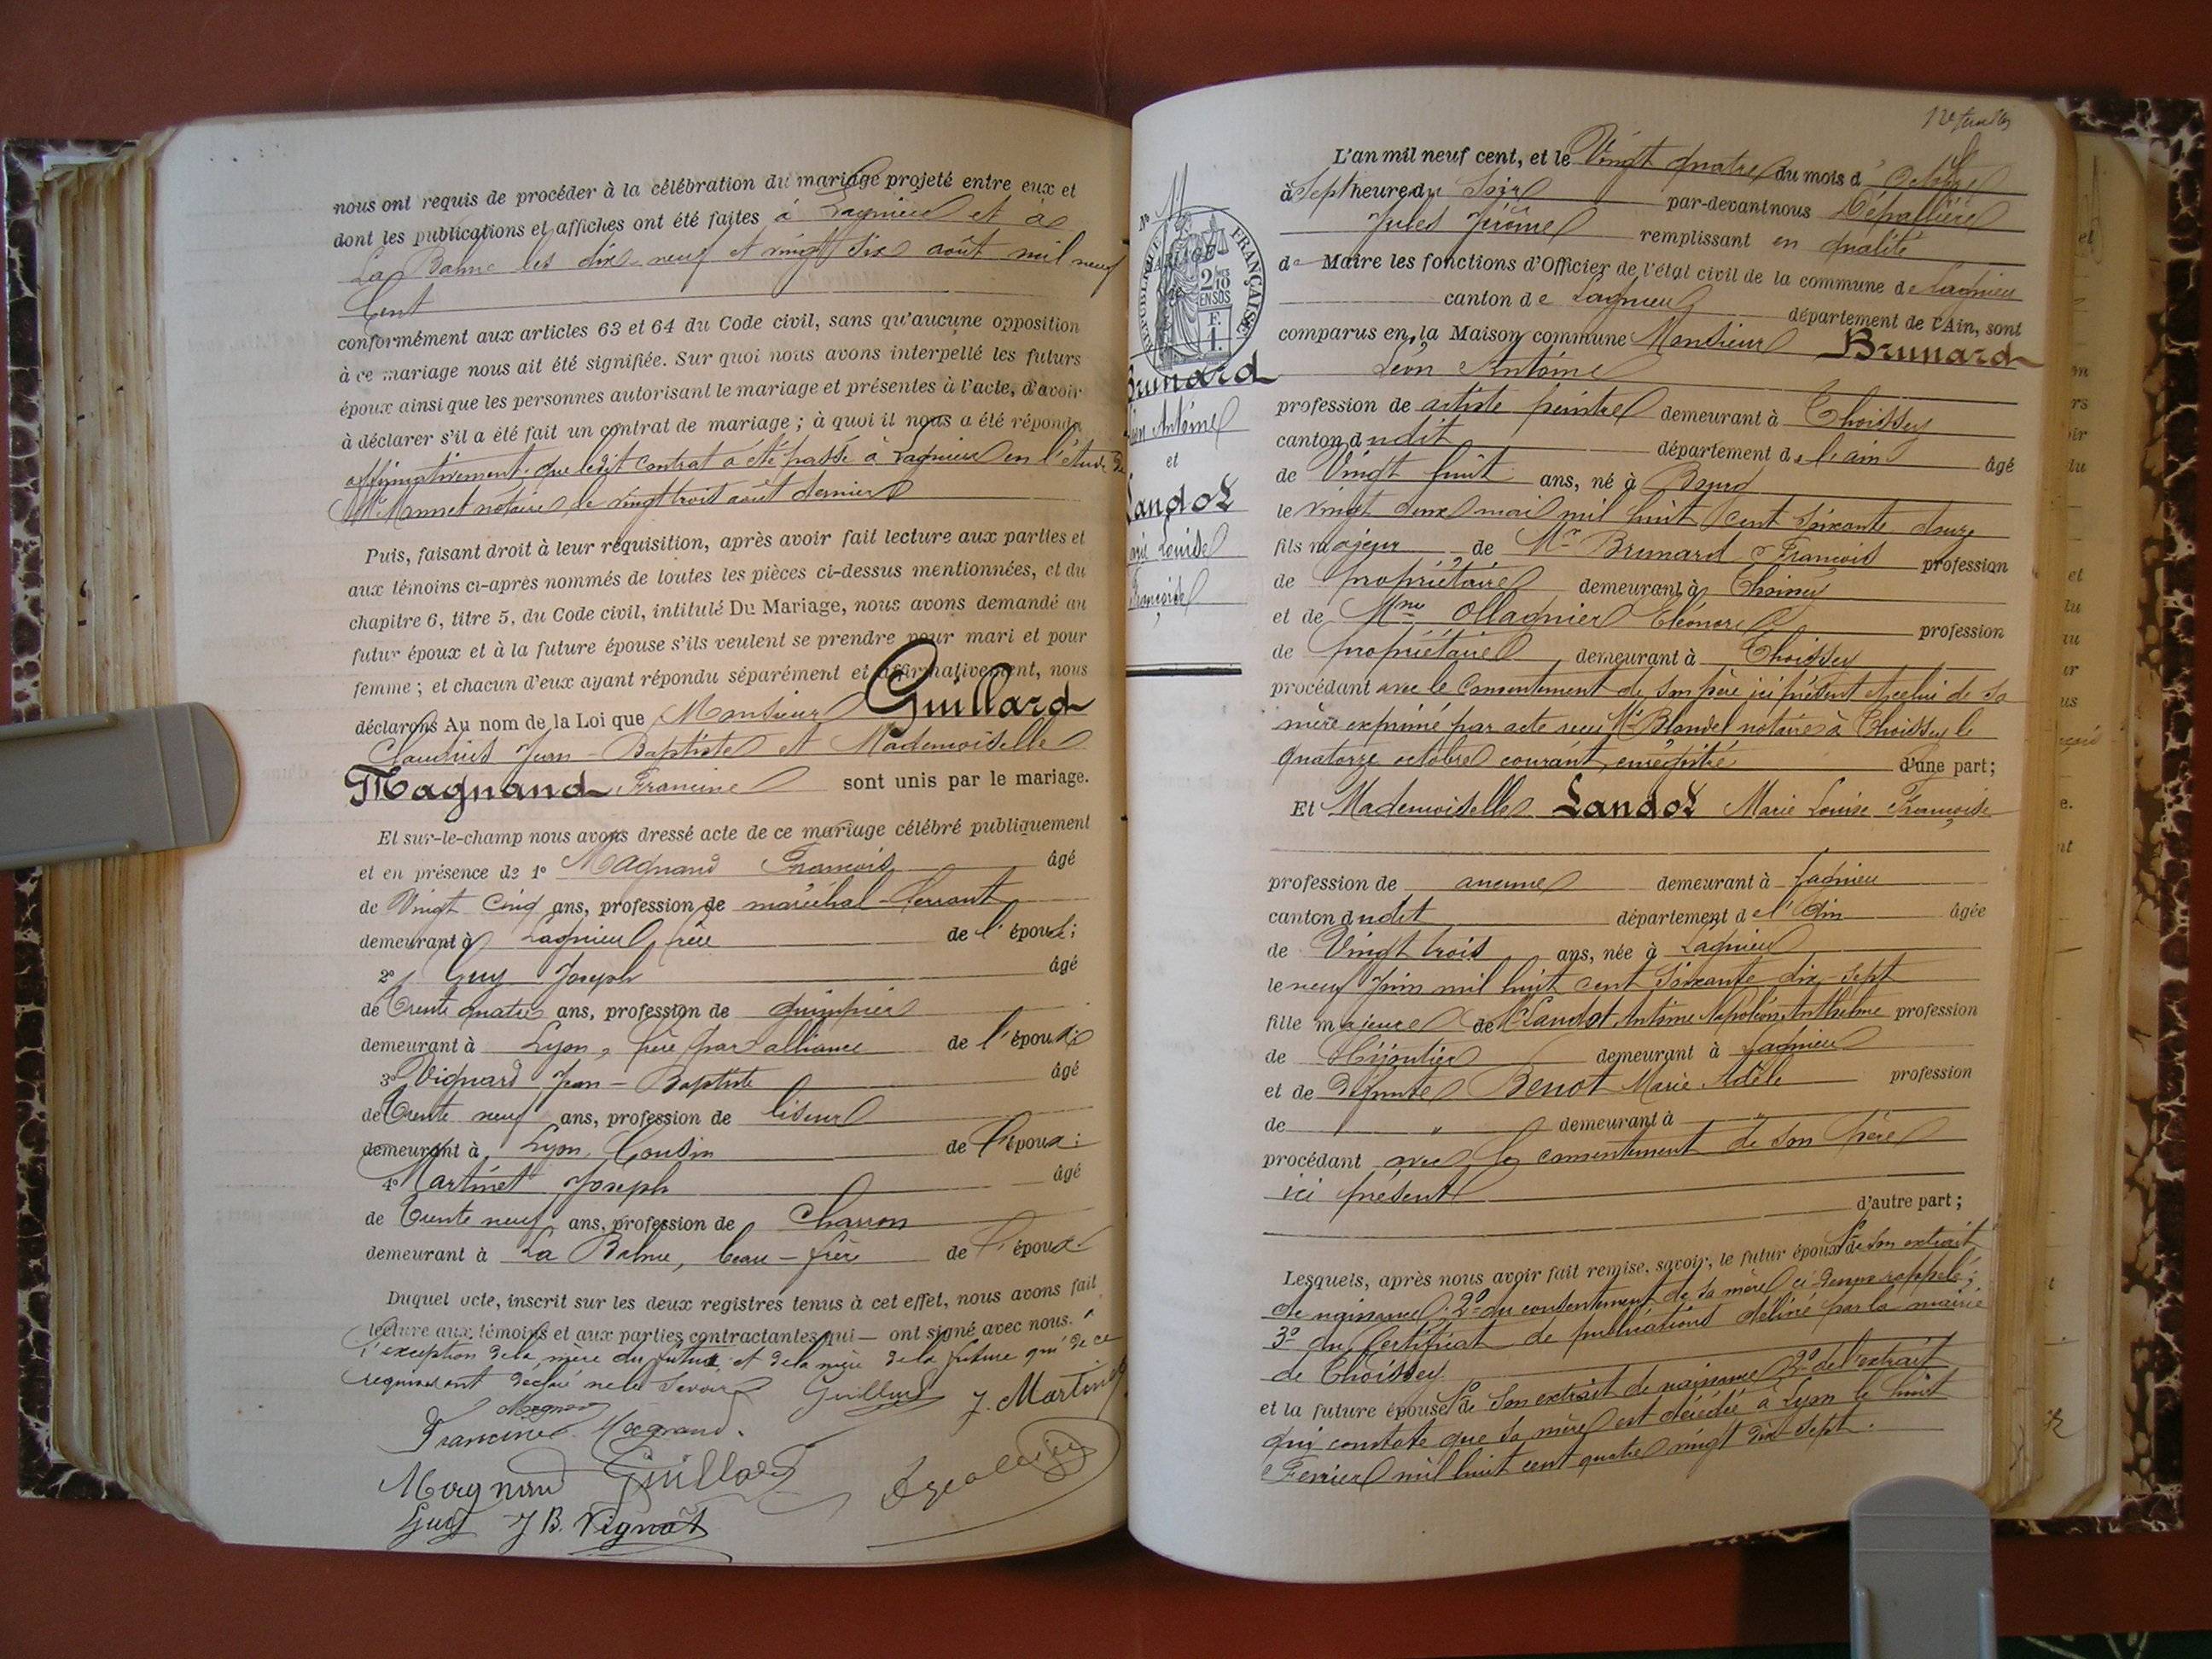 nous ont requis de procéder à la célébration du mariage projeté entre eux et
dont les publications et affiches ont été faites à Lagnieu et à
La Balme les dix-neuf et vingt six août mil neuf
Cent
conformément aux articles 63 et 64 du Code civil, sans qu'aucune opposition
à ce mariage nous ait été signifiée. Sur quoi nous avons interpellé les futurs
époux ainsi que les personnes autorisant le mariage et présentes à l'acte, d'avoir
à déclarer s'il a été fait un contrat de mariage ; à quoi il nous a été répondu
affirmativement, que ledit contrat a été passé à Lagnieu en l'étude de
Me Monnet notaire, le vingt trois août dernier
Puis, faisant droit à leur réquisition, après avoir fait lecture aux parties et
aux témoins ci-après nommés de toutes les pièces ci-dessus mentionnées, et du
chapitre 6, titre 5, du Code civil, intitulé Du Mariage, nous avons demandé au
futur époux et à la future épouse s'ils veulent se prendre pour mari et pour
femme ; et chacun d'eux ayant répondu séparément et affirmativement, nous
déclarons Au nom de la Loi que Monsieur Guillard
Claudius Jean-Baptiste et Mademoiselle
Magnand Francine sont unis par le mariage.
Et sur-le-champ nous avons dressé acte de ce mariage célébré publiquement
et en présence de 1º Magnand François âgé
de Vingt Cinq ans, profession de maréchal-ferrant
demeurant à Lagnieu, frère de l'épouse;
2º Guy Joseph âgé
de Trente quatre ans, profession de guimpier
demeurant à Lyon, frère par alliance de l'épouse
3º Vignard Jean-Baptiste âgé
de Trente neuf ans, profession de liseur
demeurant à Lyon, Cousin de l'époux;
4º Martinet Joseph âgé
de Trente neuf ans, profession de Charron
demeurant à La Balme, beau-frère de l'époux
Duquel acte, inscrit sur les deux registres tenus à cet effet, nous avons fait
lecture aux témoins et aux parties contractantes qui — ont signé avec nous. à
l'exception de la mère du futur et de la mère de la future qui de ce
requises ont déclaré ne le savoir Guillard J. Martinet
Magnan
Francine Magnand.
Magnand Guillard
Guy J B. Vignat
Nº 11
RÉPUBLIQUE FRANÇAISE
2/10 EN SUS
F. 1.
Brunard
Léon Antoine
et
Landot
Marie Louise
Françoise
L'an mil neuf cent, et le Vingt quatre du mois d'Octobre
à Sept heure du Soir par-devant nous Dépallière
Jules Jérôme remplissant en qualité
de Maire les fonctions d'Officier de l'état civil de la commune de Lagnieu
canton de Lagnieu département de l'Ain, sont
comparus en la Maison commune Monsieur Brunard
Léon Antoine
profession de artiste peintre demeurant à Thoissey
canton dudit département de l'ain âgé
de Vingt huit ans, né à Bourg
le vingt deux mai mil huit cent soixante douze
fils majeur de Mr Brunard François profession
de propriétaire demeurant à Thoissey
et de Mme Ollagnier Eléonore profession
de propriétaire demeurant à Thoissey
procédant avec le consentement de son père ici présent et celui de sa
mère exprimé par acte reçu Me Blondel notaire à Thoissey le
quatorze octobre courant, enregistré d'une part;
Et Mademoiselle Landot Marie Louise Françoise
profession de aucune demeurant à Lagnieu
canton dudit département de l'Ain âgée
de Vingt trois ans, née à Lagnieu
le neuf Juin mil huit cent soixante dix-sept
fille majeure de Mr Landot Antoine Napoléon Anthelme profession
de Bijoutier demeurant à Lagnieu
et de défunte Benot Marie Adèle profession
de " demeurant à "
procédant avec le consentement de son père
ici présent
d'autre part;
Lesquels, après nous avoir fait remise, savoir, le futur époux 1º de son extrait
de naissance; 2º du consentement de sa mère ci-dessus rappelé;
3º du Certificat de publications délivré par la mairie
de Thoissey.
et la future épouse 1º de son extrait de naissance 2º de l'extrait
qui constate que sa mère est décédée à Lyon le huit
Février mil huit cent quatre vingt dix sept.